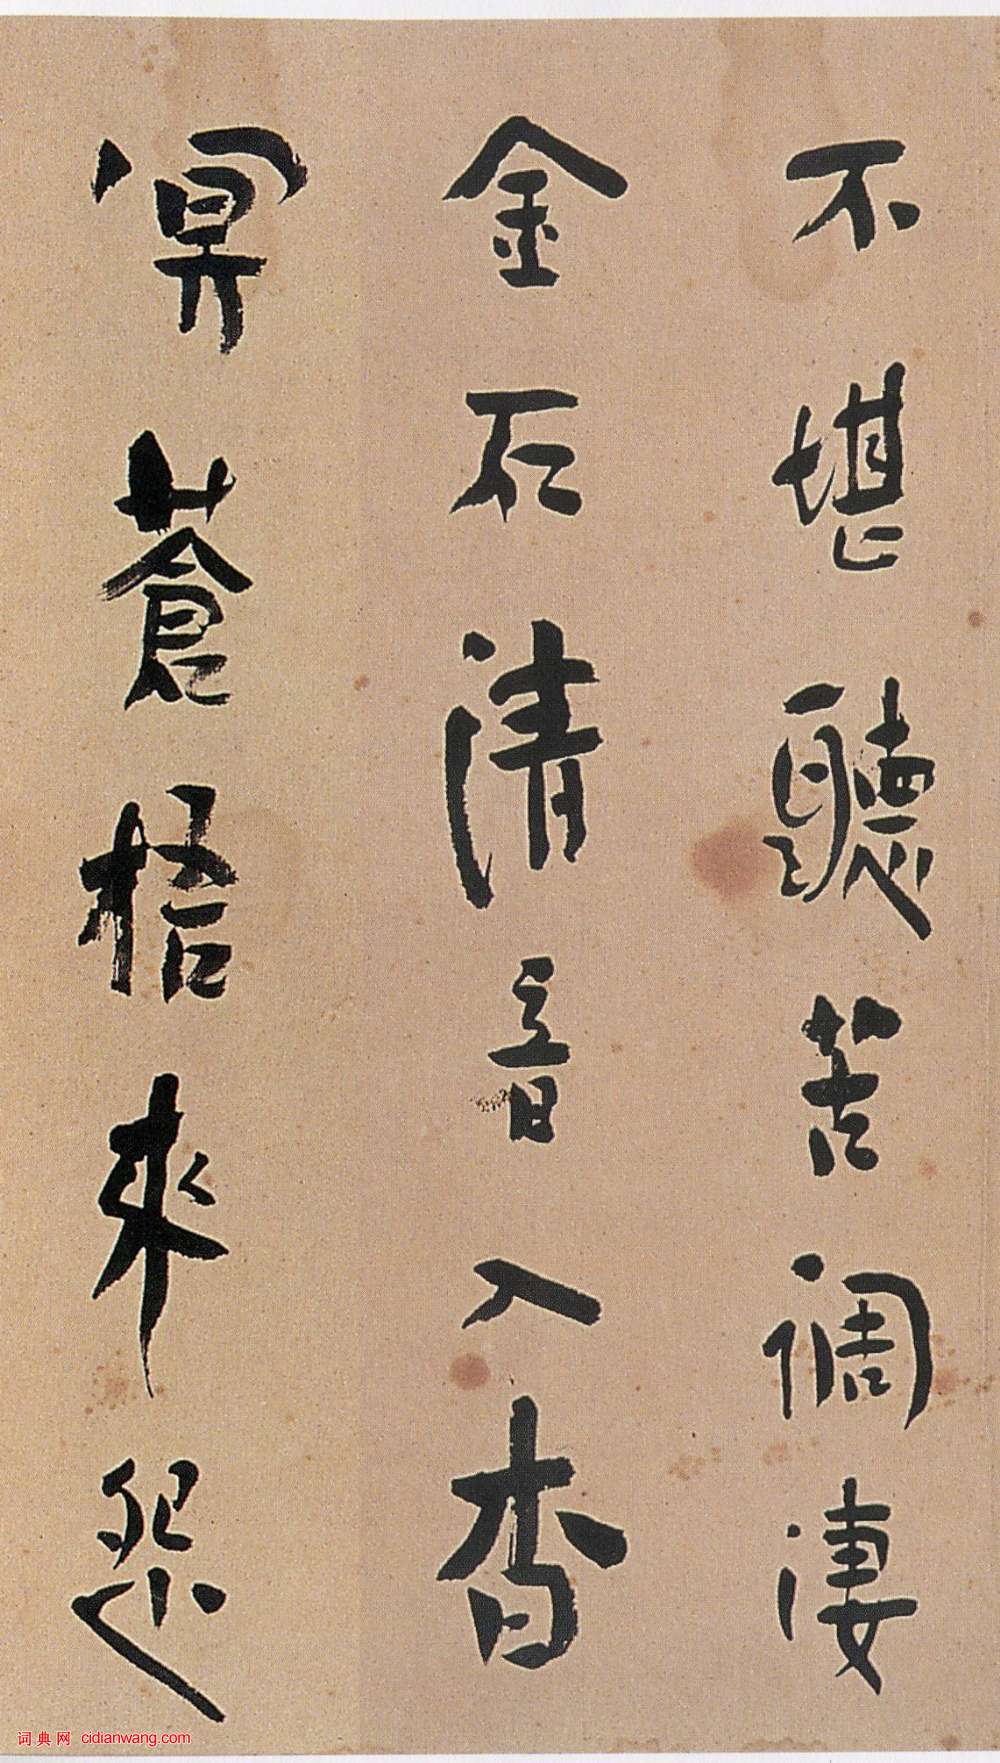 不堪聽苦調淒
金石清音入杳
冥蒼梧來怨
词典网 cidianwang.com